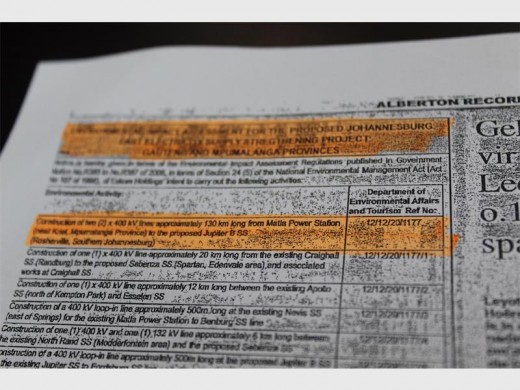 ALBERTON RECOR
ASSESSMENT FOR THE PROPOSED JOHANNESBURG
EAST ELECTRICITY SUPPLY STRENGTHENING PROJECT,
GAUTENG AND MPUMALANGA PROVINCES
Notice is hereby given in terms of the Environmental Impact Assessment Regulations published in Government
Notice No R385 to No R387 of 2006, in terms of Section 24 (5) of the National Environmental Management Act (Act
No 107 of 1998), of Eskom Holdings' intent to carry out the following activities:
Environmental Activity
Department of
Environmental Affairs
and Tourism Ref No:
Construction of two (2) x 400 kV lines approximately 130 km long from Matla Power Station
(near Kriel, Mpumalanga Province) to the proposed Jupiter B SS
(Rosherville, Southern Johannesburg)
12/12/20/1177
Construction of one (1) x 400 kV line approximately 20 km long from the existing Craighall
SS (Randburg) to the proposed Sebenza SS (Spartan, Edenvale area) and associated
works at Craighall SS
12/12/20/1177/1
Construction of one (1) x 400 kV line approximately 12 km long between the existing Apollo
SS (north of Kempton Park) and Esselen SS
12/12/20/1177/2
Construction of a 400 kV loop-in line approximately 500m long at the existing Nevis SS
(east of Springs) for the existing Matla Power Station to Benburg SS line
12/12/20/1177
Construction of one (1) 400 kV and one (1) 132 kV line approximately 6 km long between
the existing North Rand SS (Modderfontein area) and the proposed
12/12/20
Construction of a 400 kV loop-in line approximately 500m long at the proposed Jupiter B SS
Gel
vir
Le
0.1
spa